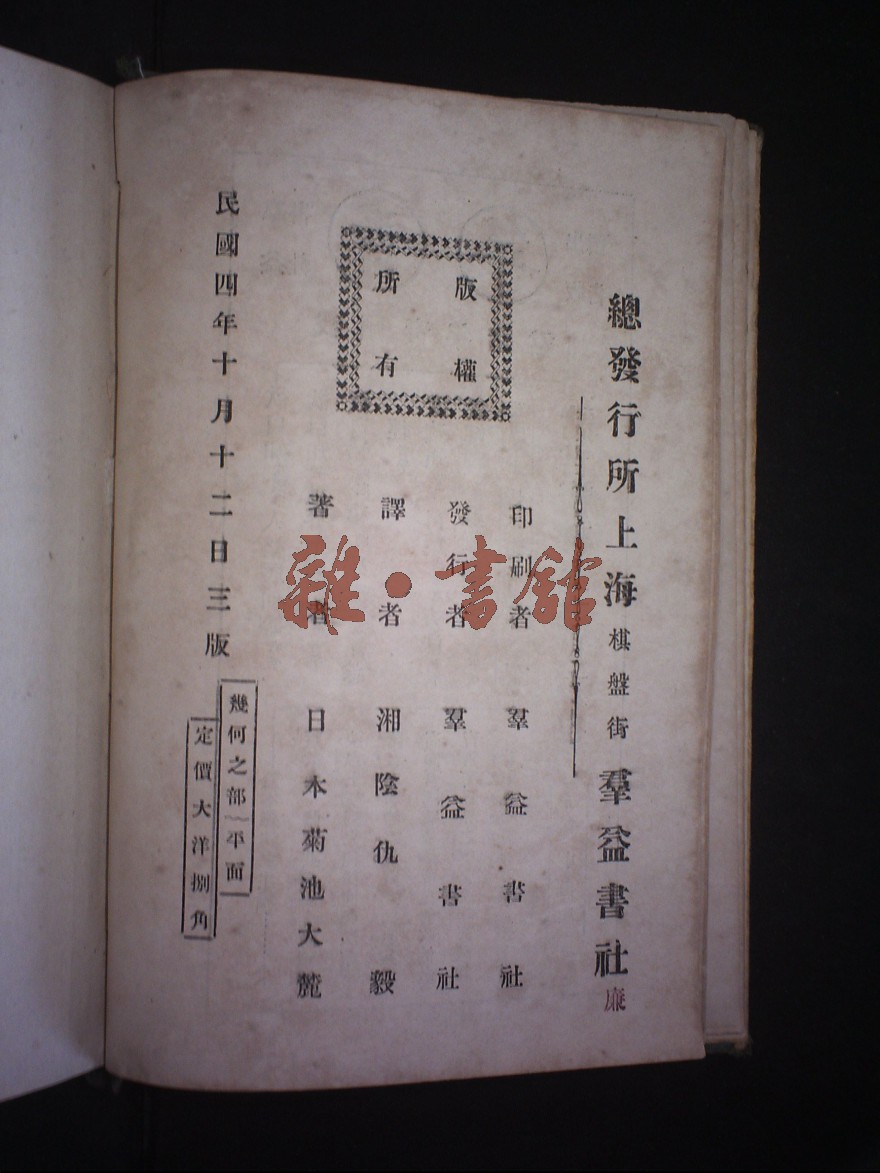 總發行所上海棋盤街羣益書社
廉
印刷者 羣益書社
發行者 羣益書社
譯者 湘陰仇毅
著者 日本菊池大麓
版權
所有
民國四年十月十二日三版
幾何之部 平面
定價大洋捌角
雜·書館